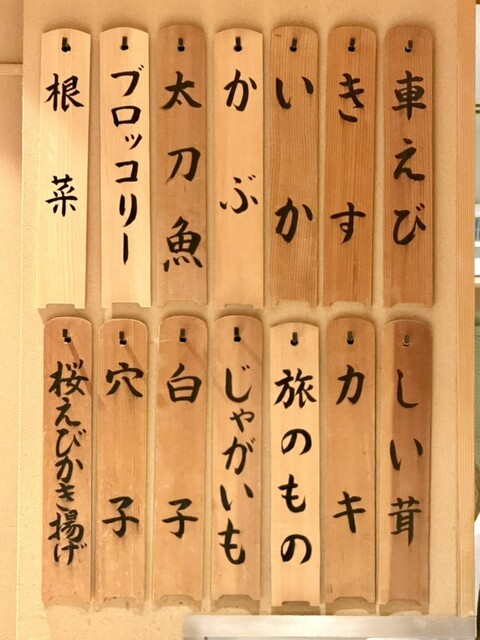 車えび
きす
いか
かぶ
太刀魚
ブロッコリー
根菜
しい茸
カキ
旅のもの
じゃがいも
白子
穴子
桜えびかき揚げ